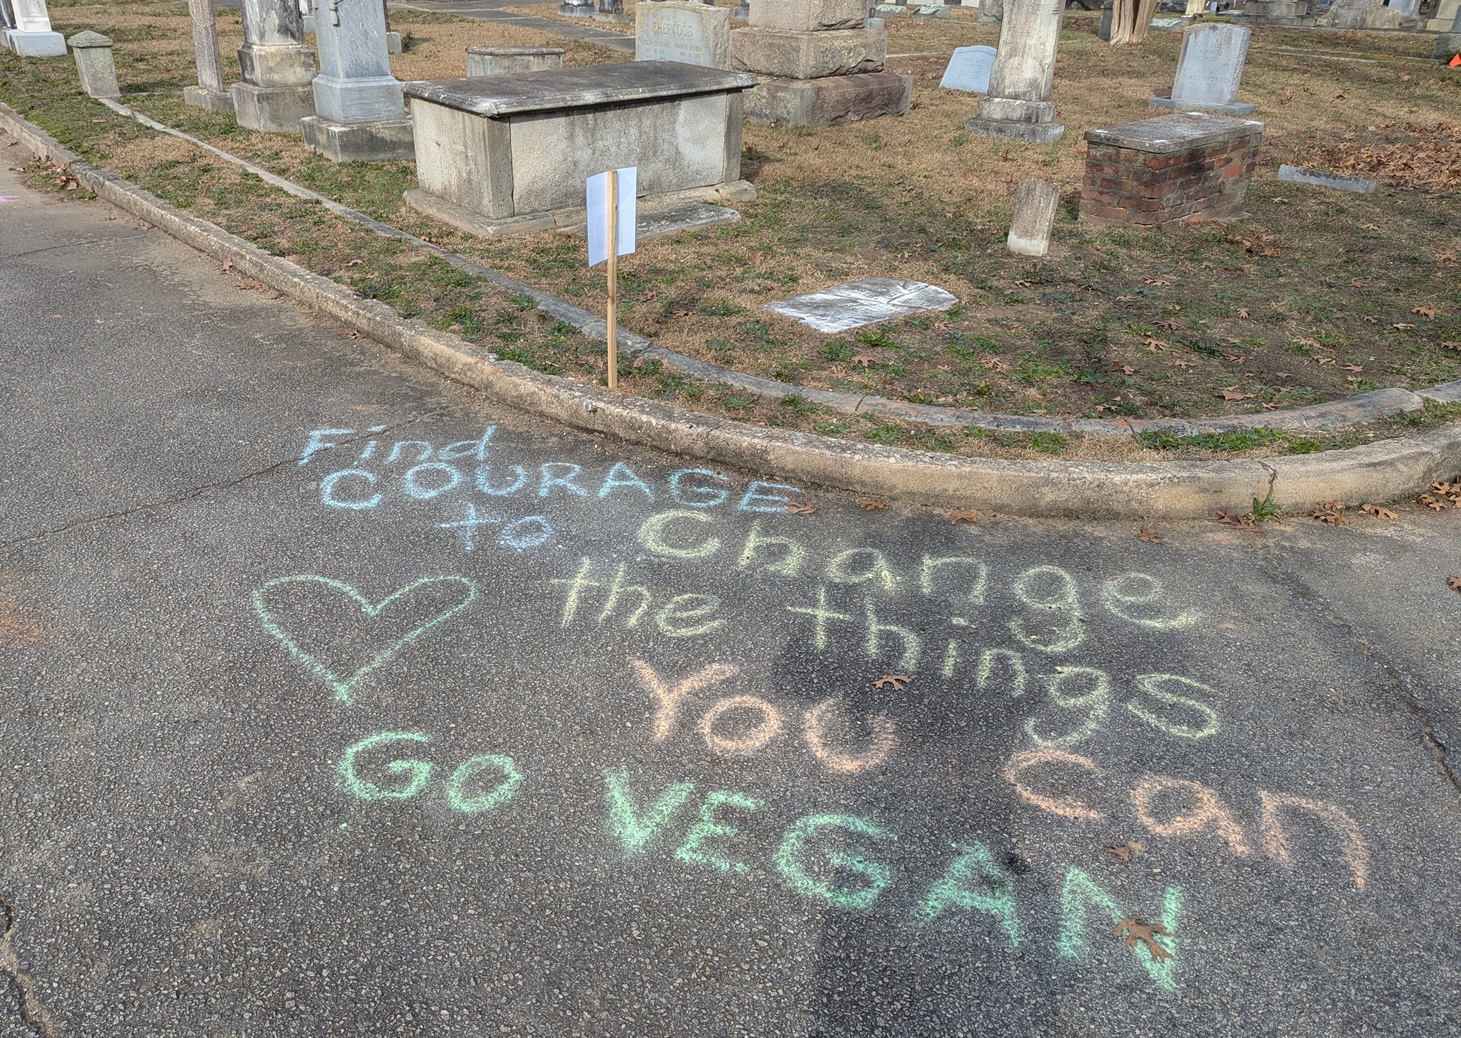 SHERWOOD
Find
COURAGE
to Change
the things
You can
Go VEGAN